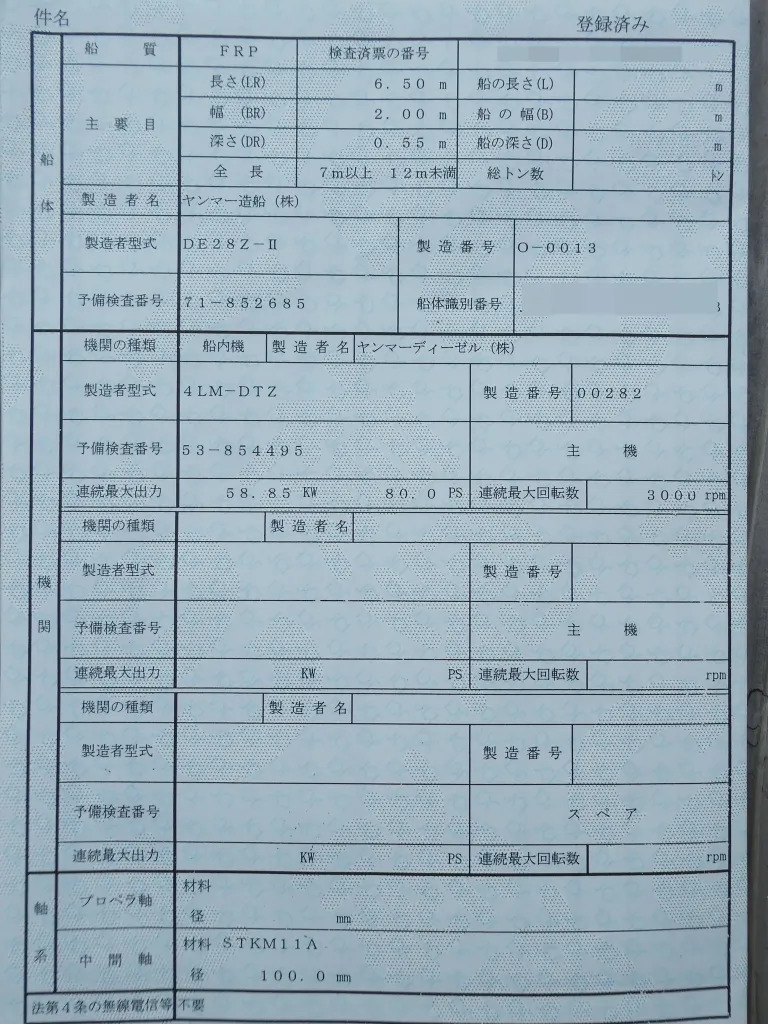 件名
登録済み
船質 ＦＲＰ 検査済票の番号
船体
主要目
長さ(LR) ６．５０ m 船の長さ(L) m
幅 (BR) ２．００ m 船の幅(B) m
深さ(DR) ０．５５ m 船の深さ(D) m
全長 ７m以上 １２m未満 総トン数 トン
製造者名 ヤンマー造船（株）
製造者型式 ＤＥ２８Ｚ－Ⅱ 製造番号 Ｏ－００１３
予備検査番号 ７１－８５２６８５ 船体識別番号
機関
機関の種類 船内機 製造者名 ヤンマーディーゼル（株）
製造者型式 ４ＬＭ－ＤＴＺ 製造番号 ００２８２
予備検査番号 ５３－８５４４９５ 主機
連続最大出力 ５８．８５ KW ８０．０ PS 連続最大回転数 ３０００ rpm
機関の種類 製造者名
製造者型式 製造番号
予備検査番号 主機
連続最大出力 KW PS 連続最大回転数 rpm
機関の種類 製造者名
製造者型式 製造番号
予備検査番号 スペア
連続最大出力 KW PS 連続最大回転数 rpm
軸系
プロペラ軸 材料
径 mm
中間軸 材料 ＳＴＫＭ１１Ａ
径 １００．０ mm
法第４条の無線電信等 不要